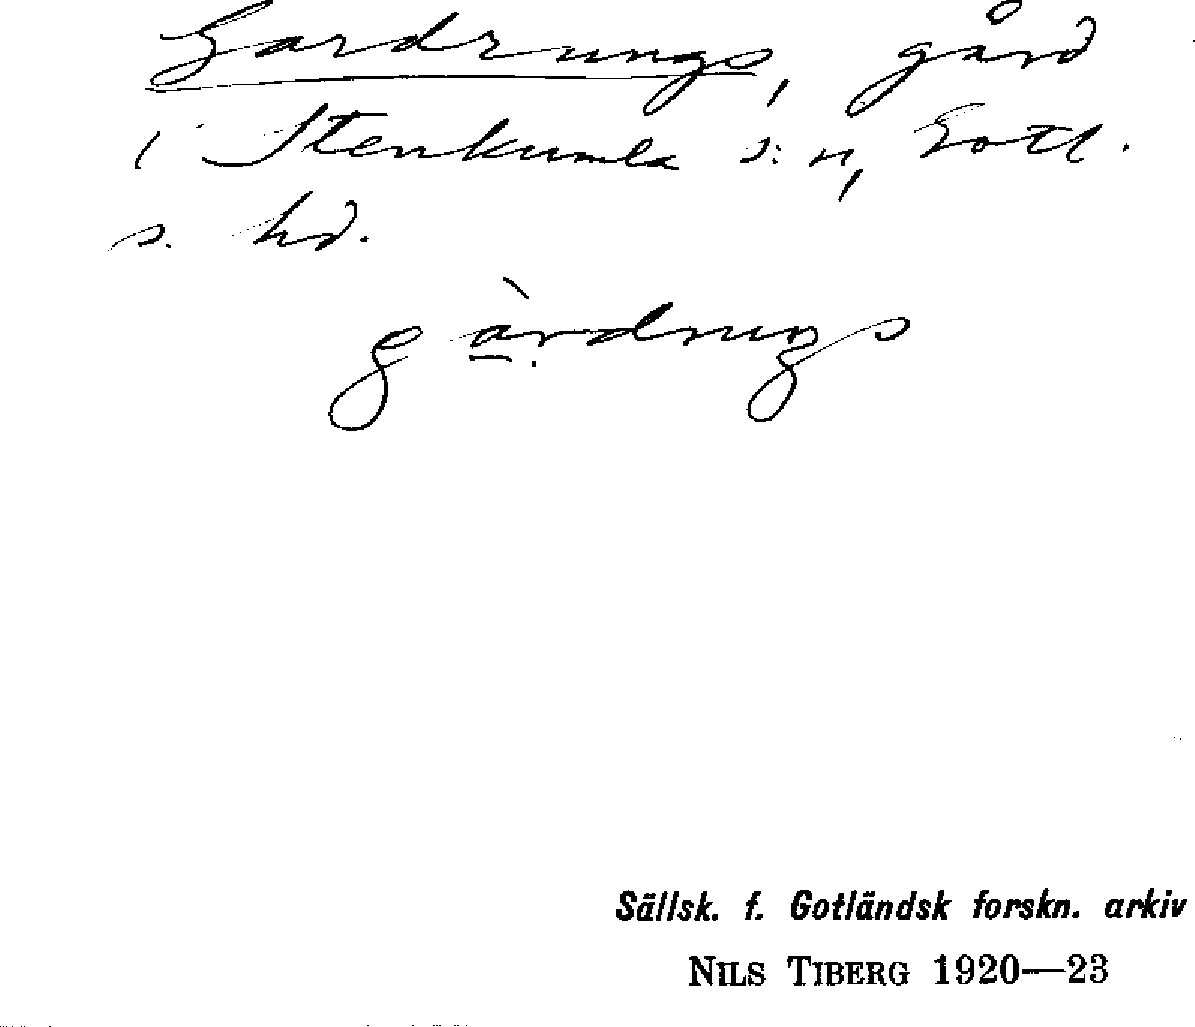 Gardrungs, gård
i Stenkumla s:n, Gotl.
s. hd.
gàrdrungs
Sällsk. f. Gotländsk forskn. arkiv
NILS TIBERG 1920—23